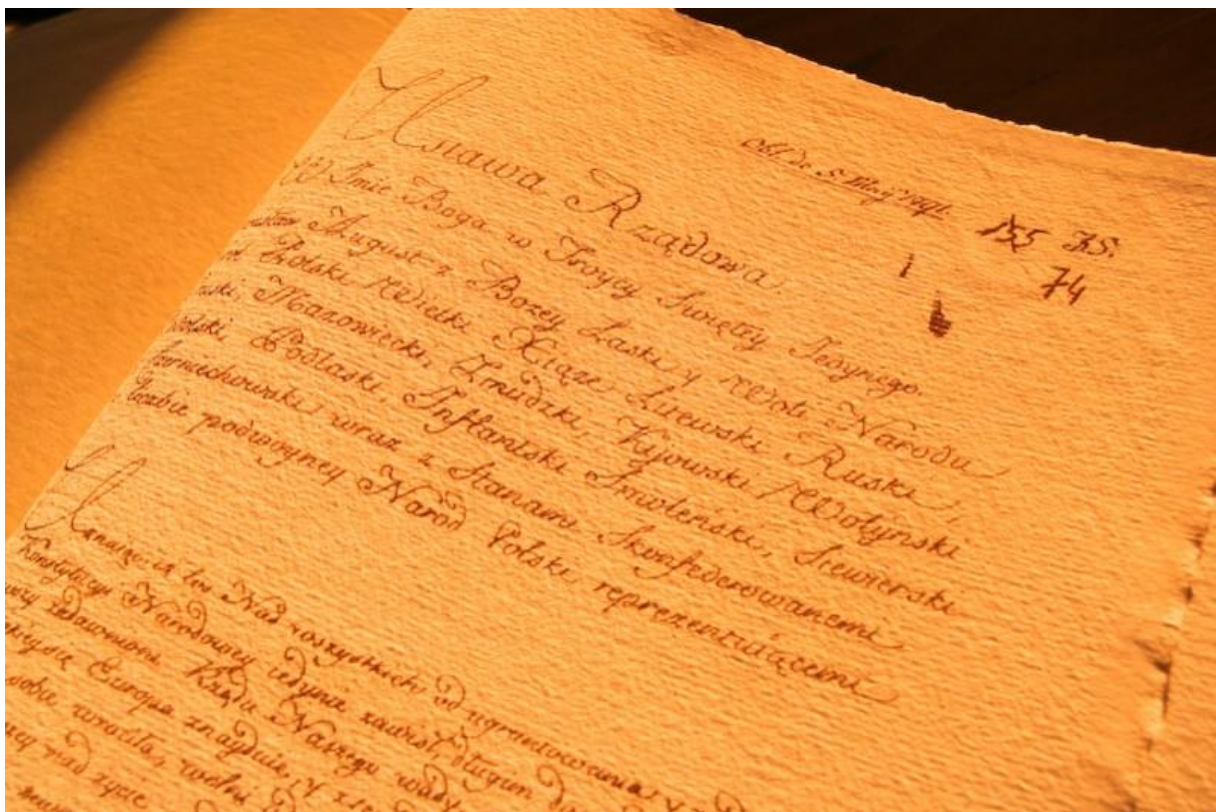 Obl. de 5. Maij 1791.
155 ZS.
1 74
Ustawa Rządowa.
W Jmie Boga w Troycy Swiętey Jedynego.
August z Bozey Łaski y Woli Narodu
Polski, Wielki Xiąze Litewski, Ruski,
Mazowiecki, Zmudzki, Kijowski, Wołyński
Podlaski, Inflantski, Smoleński, Siewierski
Czerniechowski; wraz z Stanami Skonfederowanemi
liczbie podwoyney Naród Polski reprezentuiącemi.
Uznaiąc, iż los Nas wszystkich od ugruntowania y
Konstytucyi Narodowey iedynie zawisł, długim
zadawnione Rządu Naszego wady
Europa znayduie, y z
wróciła, wolni
nad życie